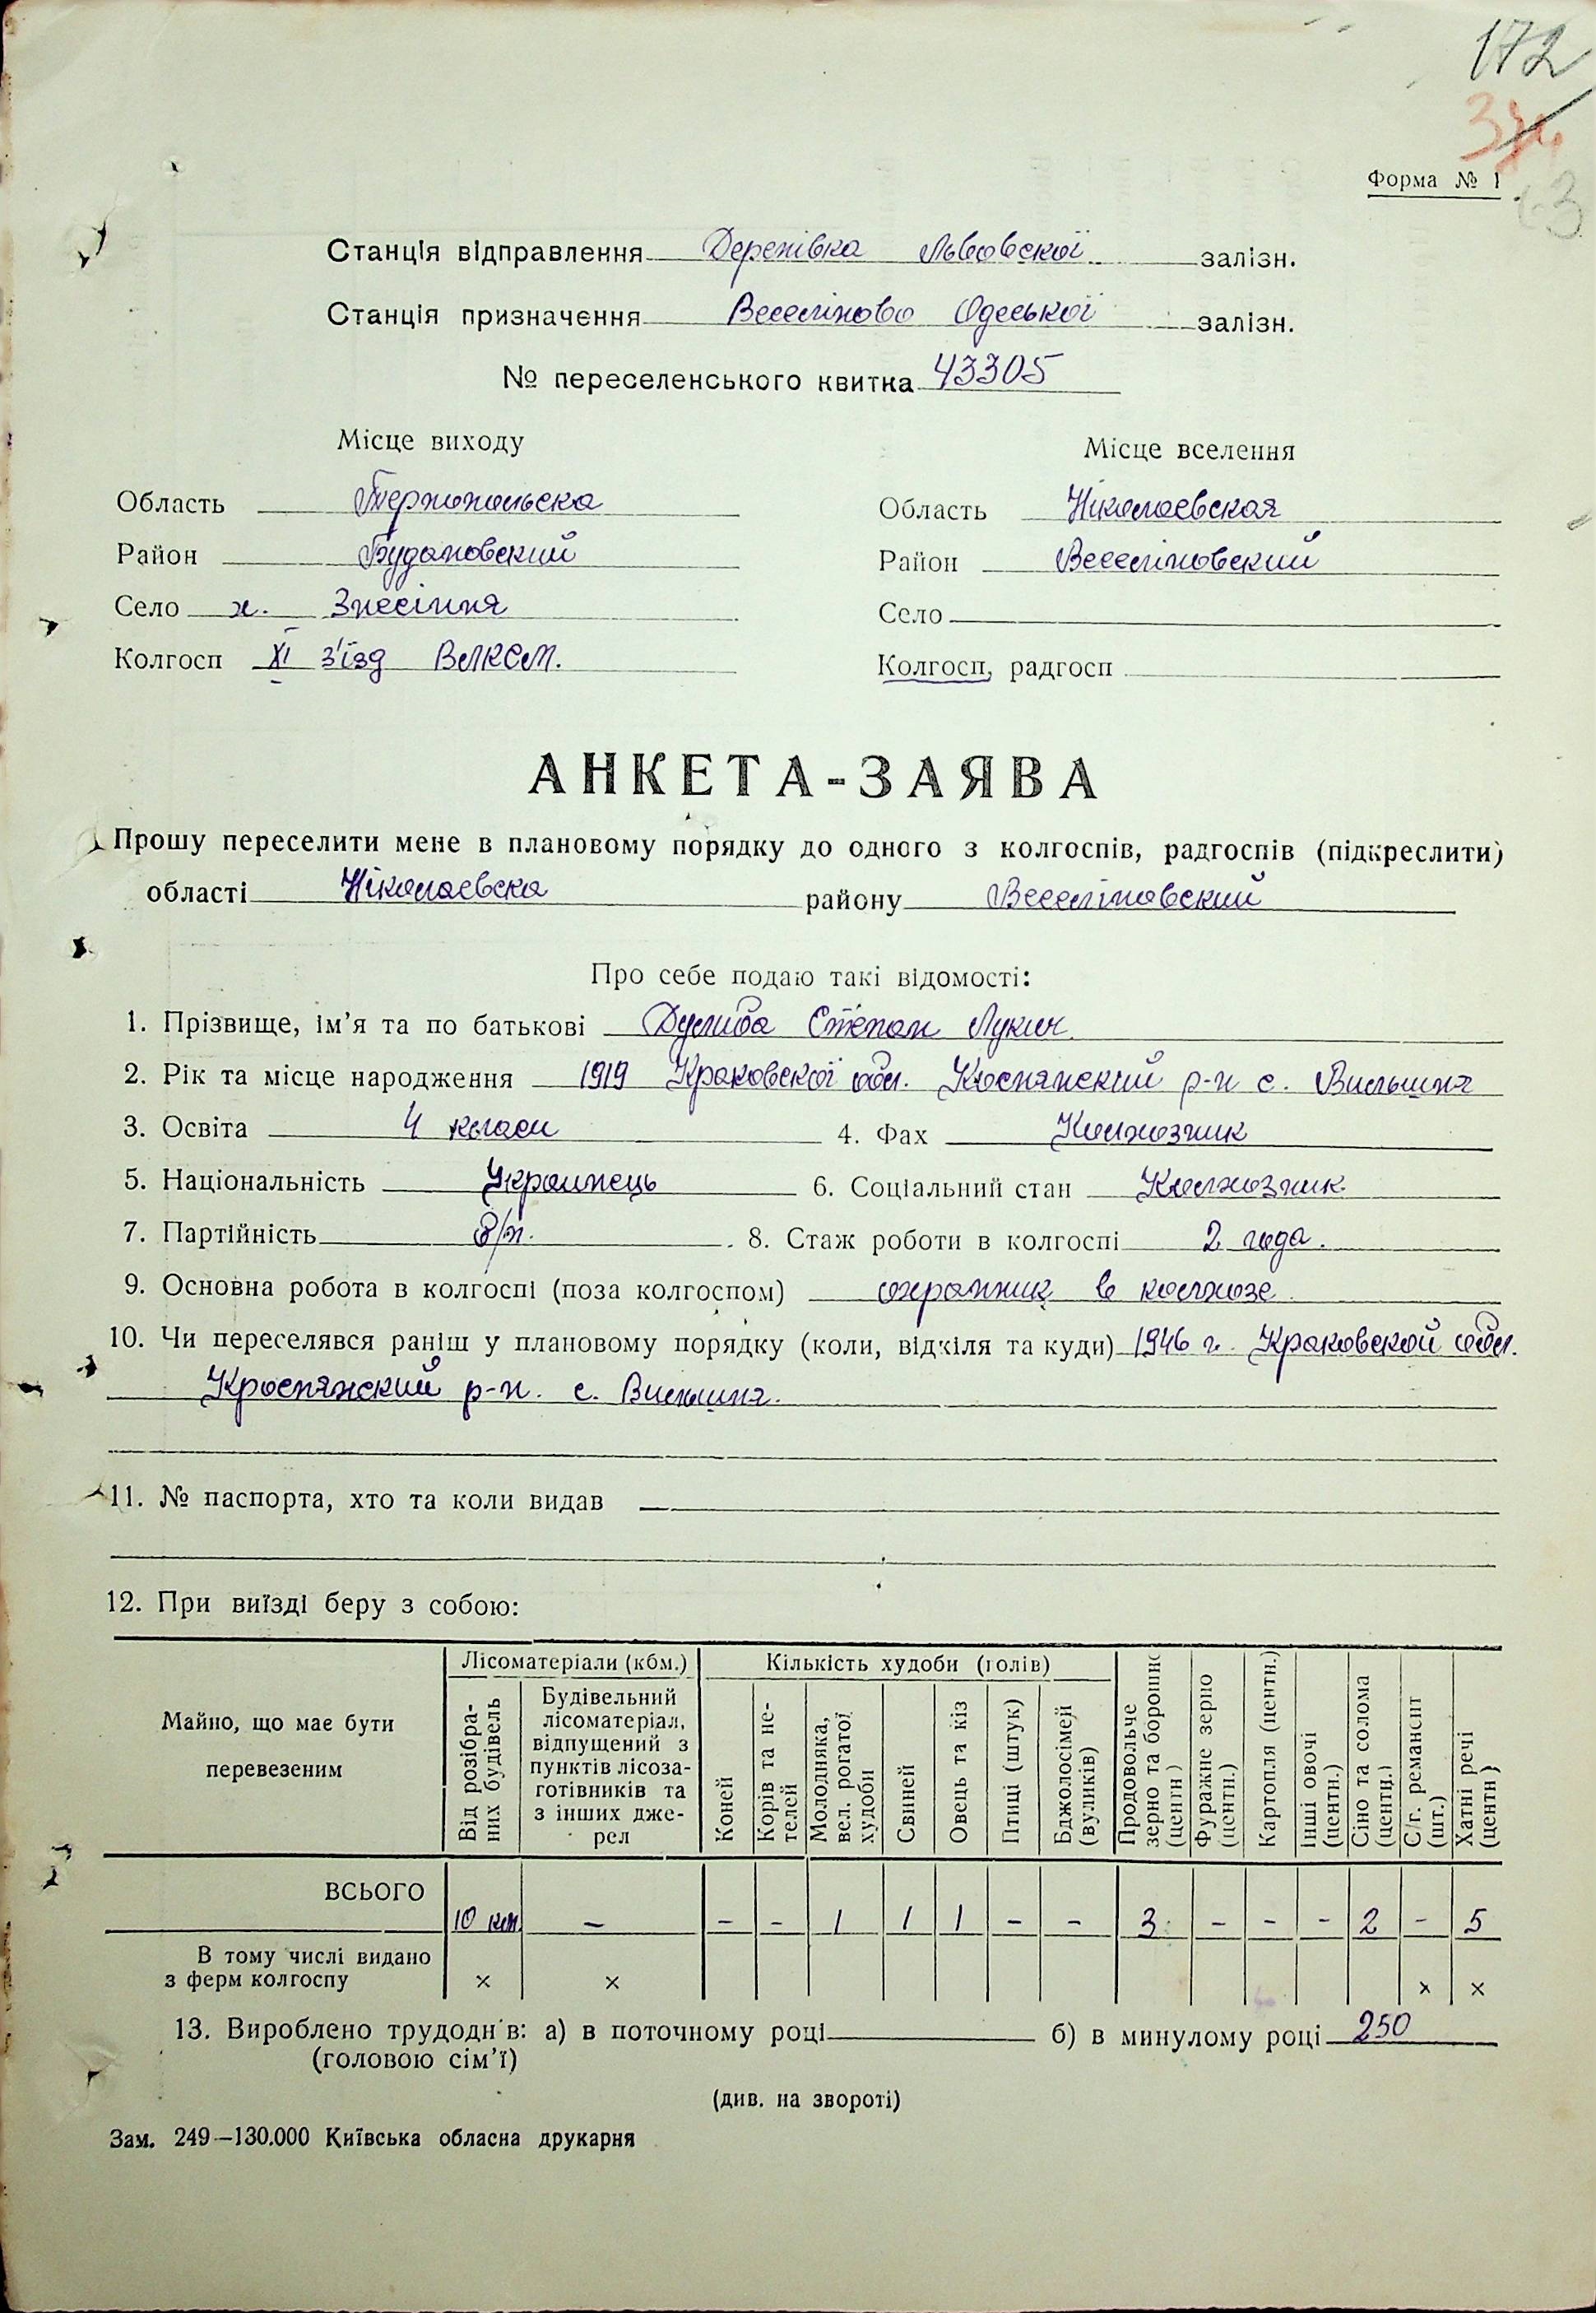 172
Форма № 1
Станція відправлення Деренівка Львовскої залізн.
Станція призначення Веселіново Одеської залізн.
№ переселенського квитка 43305
Місце виходу
Місце вселення
Область Тернопольска
Область Ніколаевская
Район Будановский
Район Веселіновский
Село х. Знесіння
Село
Колгосп XI з'їзд ВЛКСМ.
Колгосп, радгосп
АНКЕТА-ЗАЯВА
Прошу переселити мене в плановому порядку до одного з колгоспів, радгоспів (підкреслити)
області Ніколаевска району Веселіновский
Про себе подаю такі відомості:
1. Прізвище, ім'я та по батькові Дулиба Степан Лукич
2. Рік та місце народження 1919 Краковскої обл. Коснянский р-н с. Вильшня
3. Освіта 4 класи 4. Фах Колхозник
5. Національність Украинець 6. Соціальний стан Колхозник
7. Партійність б/п. 8. Стаж роботи в колгоспі 2 года.
9. Основна робота в колгоспі (поза колгоспом) охранник в колхозе
10. Чи переселявся раніш у плановому порядку (коли, відкіля та куди) 1946 г. Краковской обл.
Кроснянский р-н. с. Вильшня.
11. № паспорта, хто та коли видав
12. При виїзді беру з собою:
Майно, що має бути перевезеним
Лісоматеріали (кбм.)
Кількість худоби (голів)
Від розібраних будівель
Будівельний лісоматеріал, відпущений з пунктів лісозаготівників та з інших джерел
Коней
Корів та нетелей
Молодняка, вел. рогатої худоби
Свиней
Овець та кіз
Птиці (штук)
Бджолосімей (вуликів)
Продовольче зерно та борошно (центн)
Фуражне зерно (центн.)
Картопля (центн.)
Інші овочі (центн.)
Сіно та солома (центц.)
С/г. реманент (шт.)
Хатні речі (центн)
ВСЬОГО 10 км - - - 1 1 1 - - 3 - - - 2 - 5
В тому числі видано
з ферм колгоспу × × × ×
13. Вироблено трудоднів: а) в поточному році б) в минулому році 250
(головою сім'ї)
(див. на звороті)
Зам. 249—130.000 Київська обласна друкарня